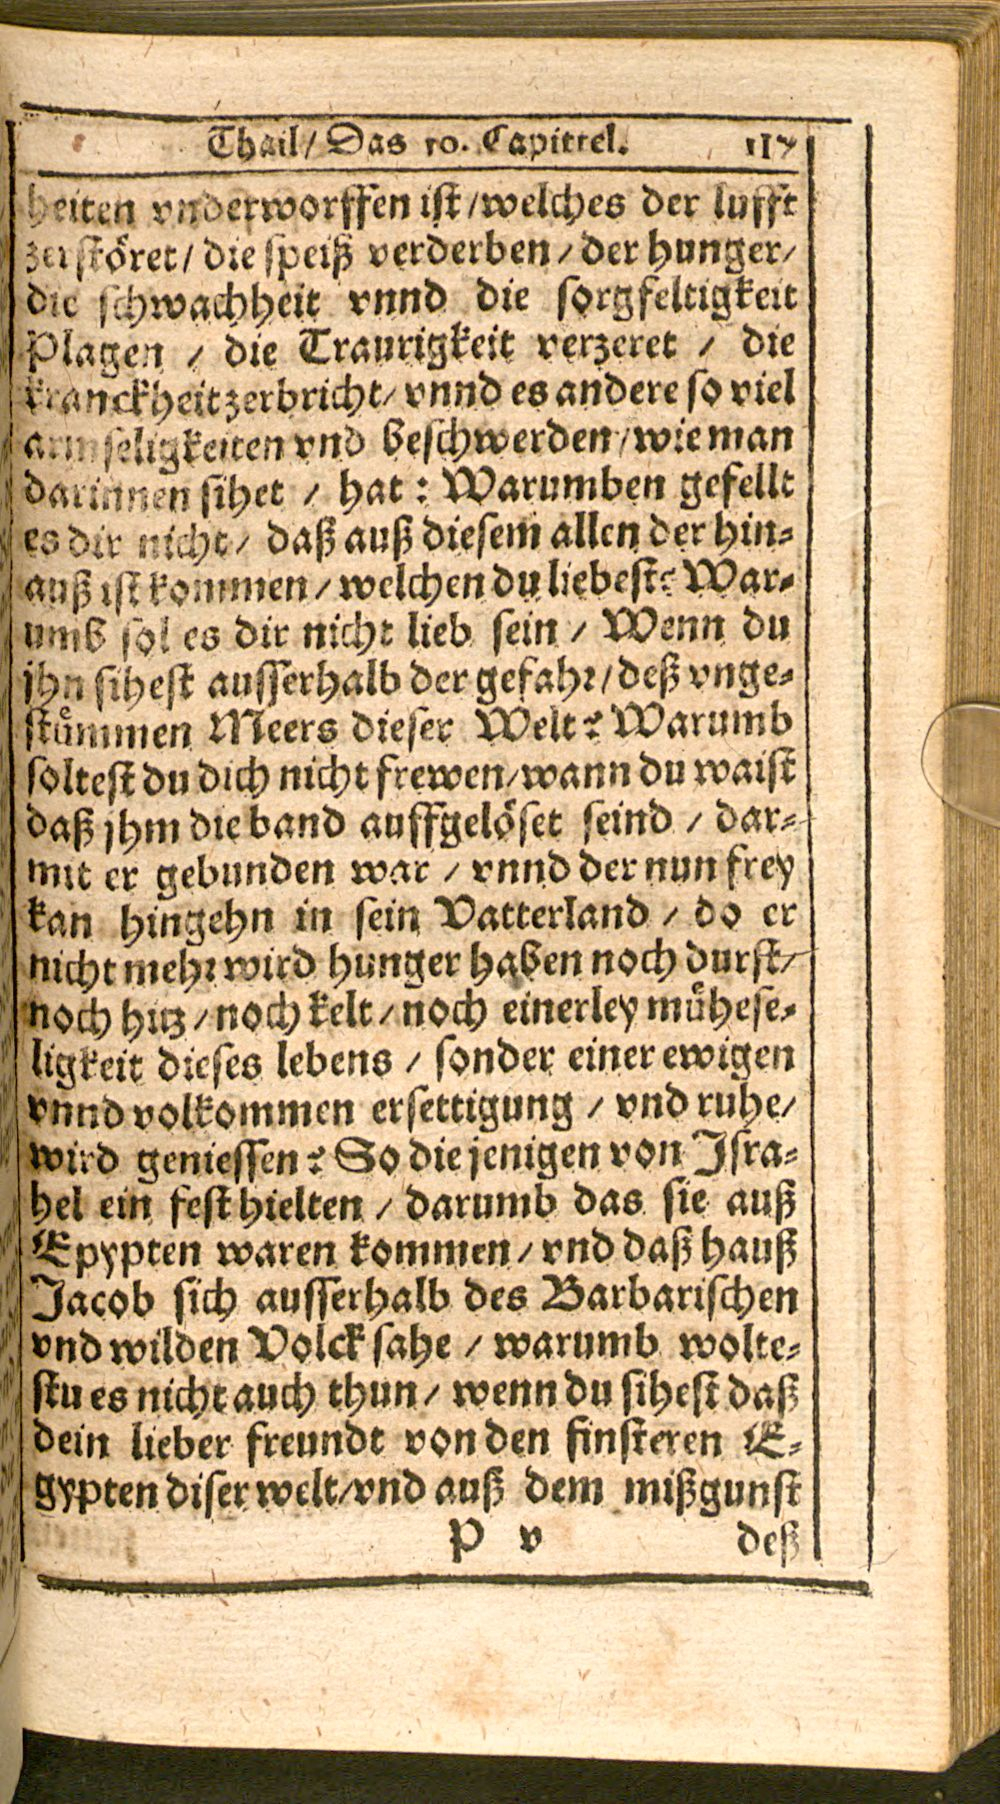 Thail/ Das 10. Capittel. 117
heiten vnderworffen ist/welches der lufft
zerstöret/ die speiß verderben/ der hunger/
die schwachheit vnnd die sorgfeltigkeit
Plagen / die Traurigkeit verzeret / die
kranckheit zerbricht/ vnnd es andere so viel
armseligkeiten vnd beschwerden/wie man
darinnen sihet / hat: Warumben gefellt
es dir nicht/ daß auß diesem allen der hin-
auß ist kommen/ welchen du liebest? War-
umb sol es dir nicht lieb sein / Wenn du
jhn sihest ausserhalb der gefahr/deß vnge-
stům̈men Meers dieser Welt? Warumb
soltest du dich nicht frewen/wann du waist
daß jhm die band auffgelöset seind / dar-
mit er gebunden war / vnnd der nun frey
kan hingehn in sein Vatterland / do er
nicht mehr wird hunger haben noch durst/
noch hitz/noch kelt/noch einerley mühese-
ligkeit dieses lebens / sonder einer ewigen
vnnd volkommen ersettigung / vnd ruhe/
wird geniessen? So die jenigen von Isra-
hel ein fest hielten / darumb das sie auß
Epypten waren kommen/ vnd daß hauß
Jacob sich ausserhalb des Barbarischen
vnd wilden Volck sahe / warumb wolte-
stu es nicht auch thun/ wenn du sihest daß
dein lieber freundt von den finsteren E-
gypten diser welt/vnd auß dem mißgunst
P v deß